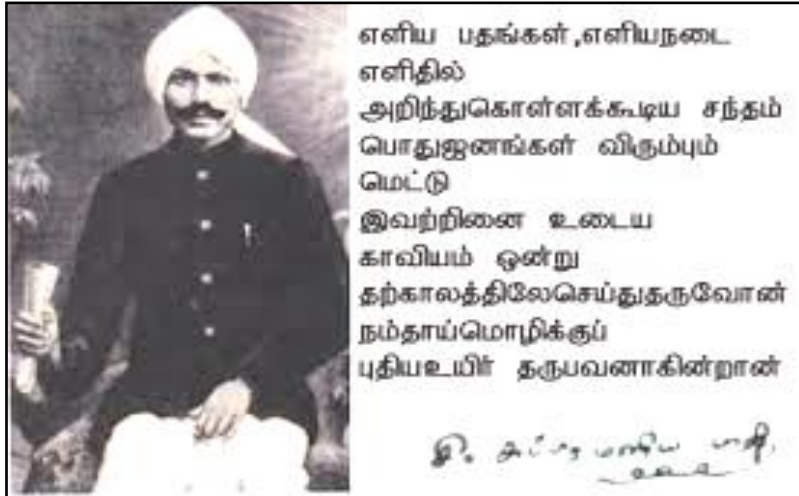 எளிய பதங்கள்,எளியநடை
எளிதில்
அறிந்துகொள்ளக்கூடிய சந்தம்
பொதுஜனங்கள் விரும்பும்
மெட்டு
இவற்றினை உடைய
காவியம் ஒன்று
தற்காலத்திலேசெய்துதருவோன்
நம்தாய்மொழிக்குப்
புதியஉயிர் தருபவனாகின்றான்